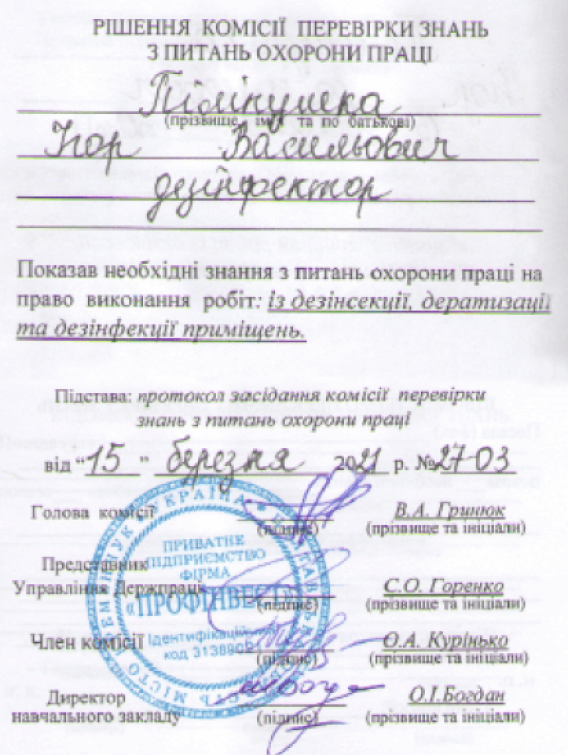 РІШЕННЯ КОМІСІЇ ПЕРЕВІРКИ ЗНАНЬ
З ПИТАНЬ ОХОРОНИ ПРАЦІ
Пімінушка
(прізвище ім'я та по батькові)
Ігор Васильович
дезінфектор
Показав необхідні знання з питань охорони праці на
право виконання робіт: із дезінсекції, дератизації
та дезінфекції приміщень.
Підстава: протокол засідання комісії перевірки
знань з питань охорони праці
від "15" березня 2021 р. №27-03
Голова комісії (підпис) В.А. Гринюк
(прізвище та ініціали)
Представник
Управління Держпраці (підпис) С.О. Горенко
(прізвище та ініціали)
Член комісії (підпис) О.А. Курінько
(прізвище та ініціали)
Директор
навчального закладу (підпис) О.І.Богдан
(прізвище та ініціали)
УКРАЇНА
МІСТО КРЕМЕНЧУК
ПРИВАТНЕ
ПІДПРИЄМСТВО
ФІРМА
«ПРОФІНВЕСТ»
Ідентифікаційний
код